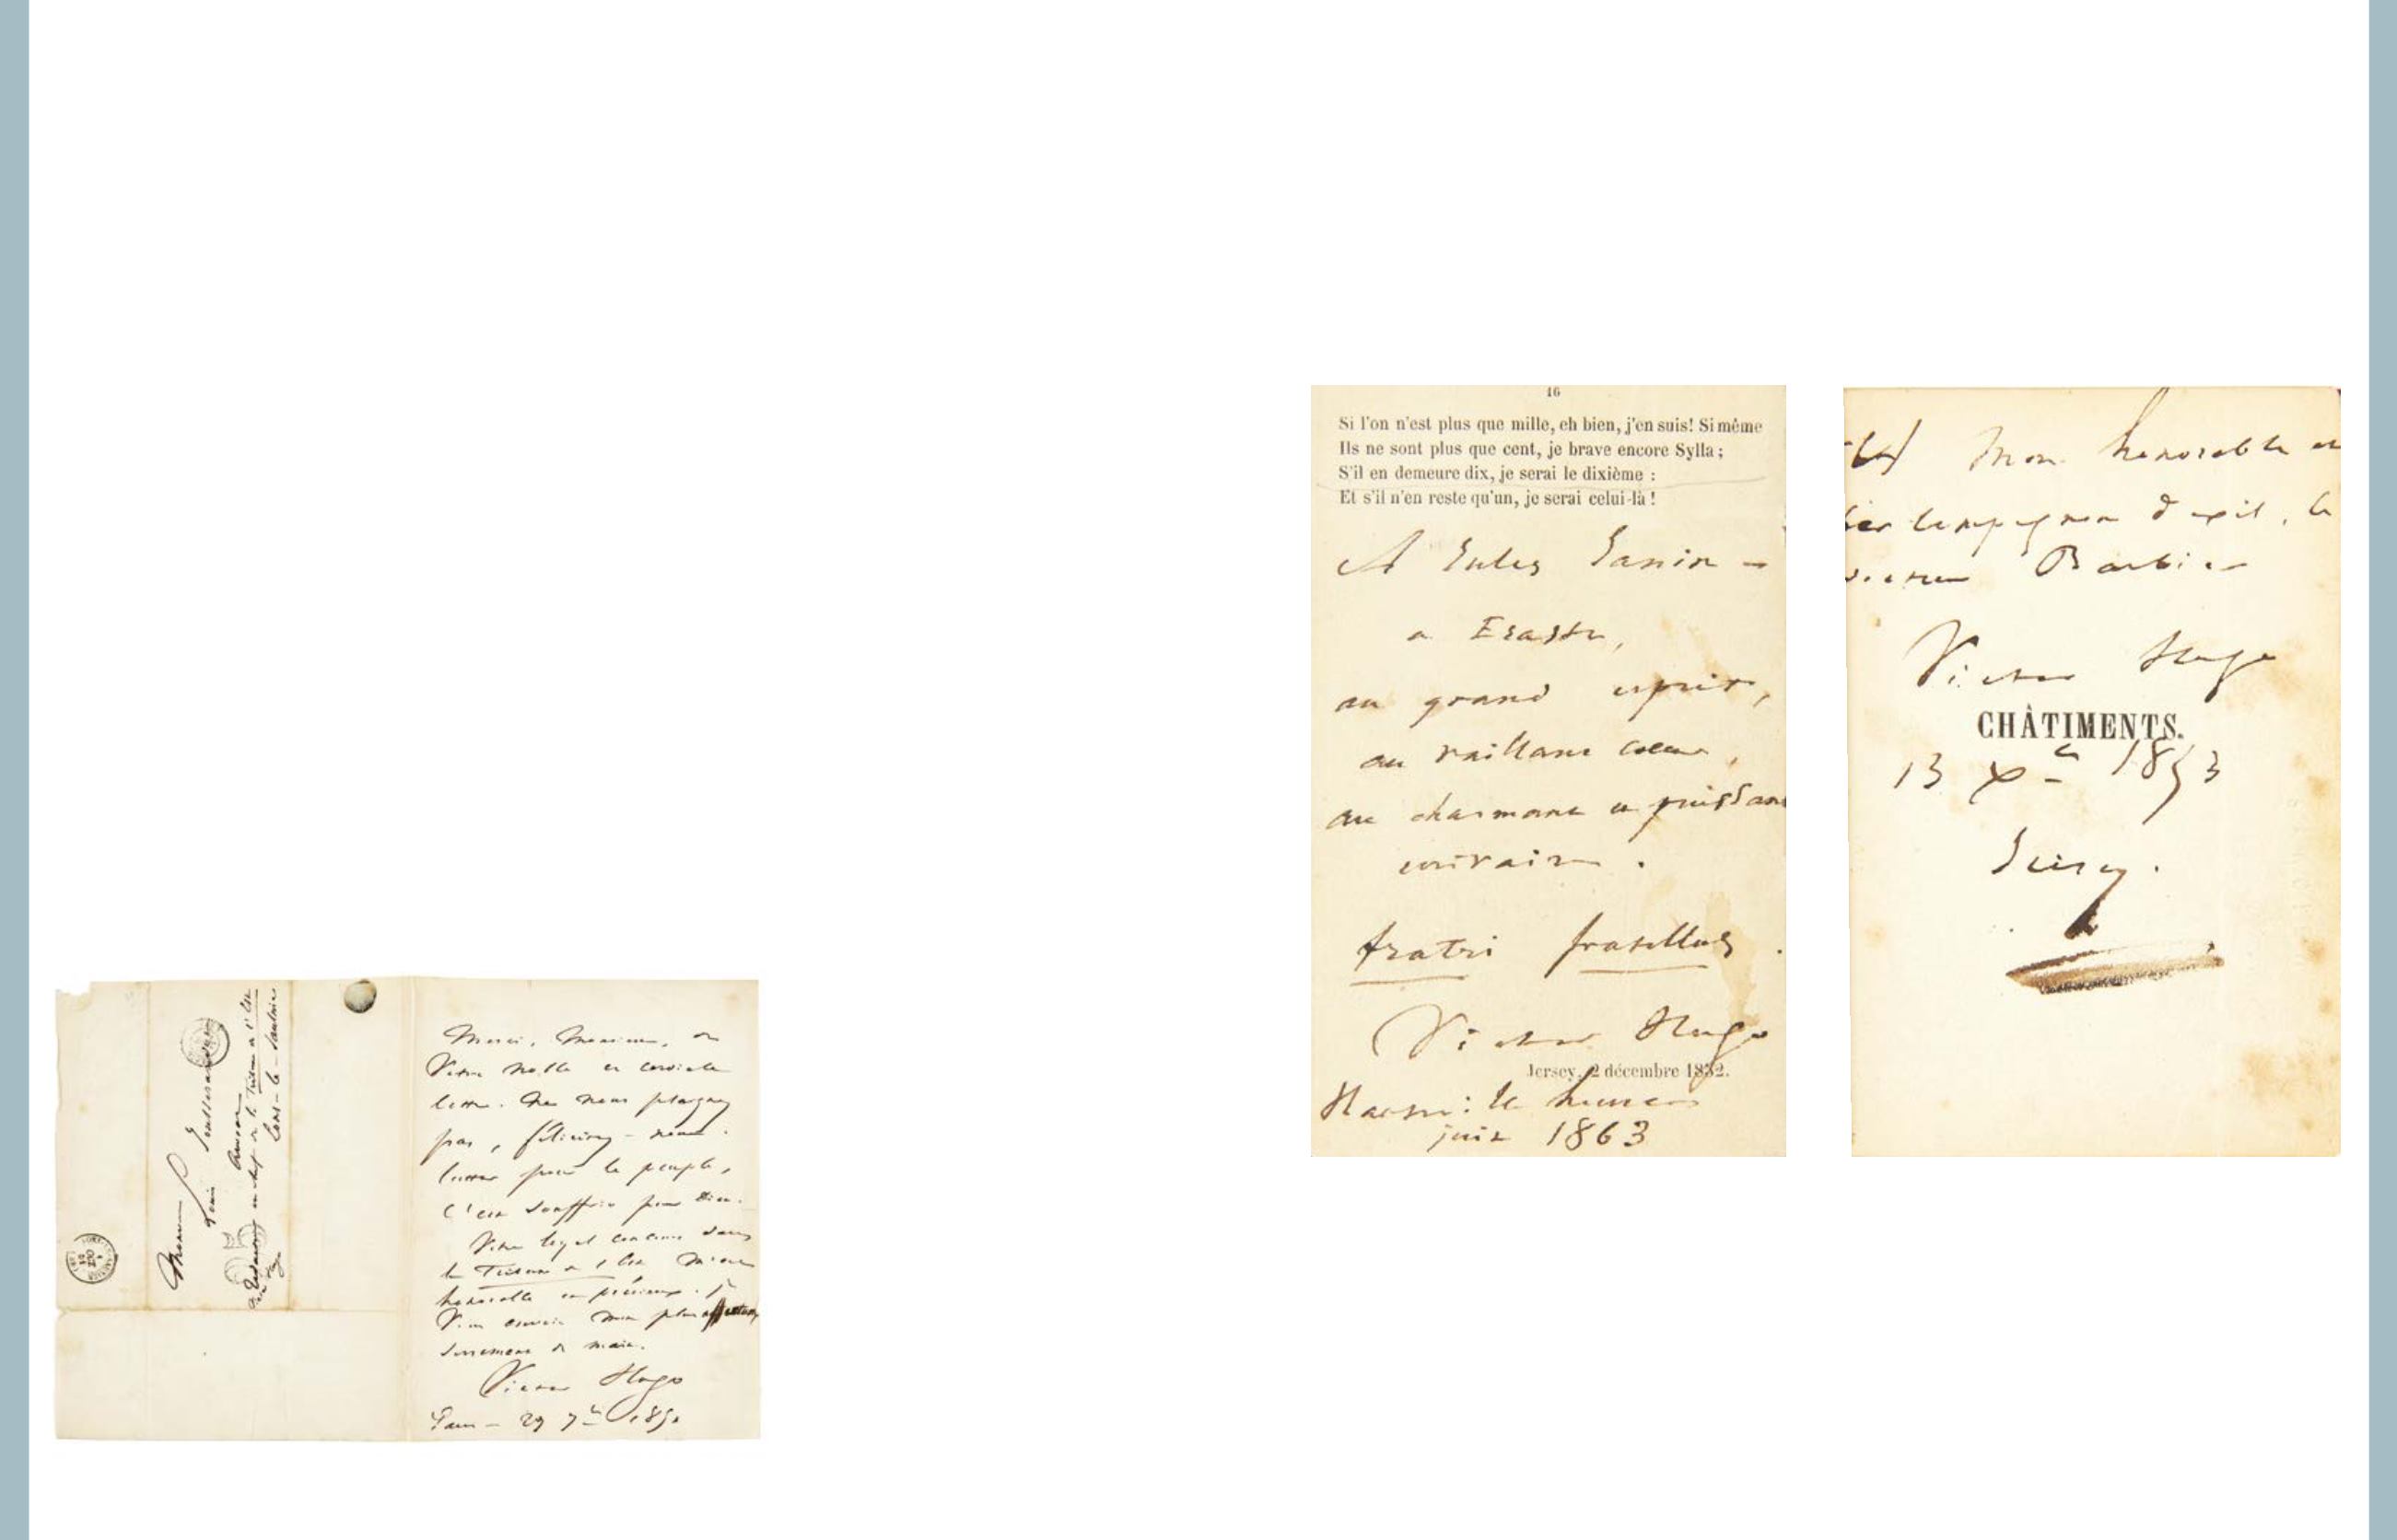 Monsieur
Louis
Rédacteur en chef de la Tribune de l'Est
Lons-le-Saulnier
Merci, Monsieur, de
Votre noble et cordiale
lettre. Ne nous plaignez
pas, félicitez-nous.
lutter pour le peuple,
c'est souffrir pour Dieu.
Votre loyal concours dans
la Tribune de l'Est m'est
honorable et précieux. Je
Vous envoie mon plus affectueux
serrement de main.
Victor Hugo
Paris – 29 7bre 1850
16
Si l'on n'est plus que mille, eh bien, j'en suis! Si même
Ils ne sont plus que cent, je brave encore Sylla ;
S'il en demeure dix, je serai le dixième :
Et s'il n'en reste qu'un, je serai celui-là !
A Jules Janin –
à Eraste,
au grand esprit,
au vaillant cœur,
au charmant et puissant
écrivain.
fratri fratellus.
Victor Hugo
Jersey, 2 décembre 1852.
Hauteville house
juin 1863
à mon honorable et
cher compagnon d'exil, le
docteur Barbier
Victor Hugo
CHÂTIMENTS.
13 Xbre 1853
Jersey.